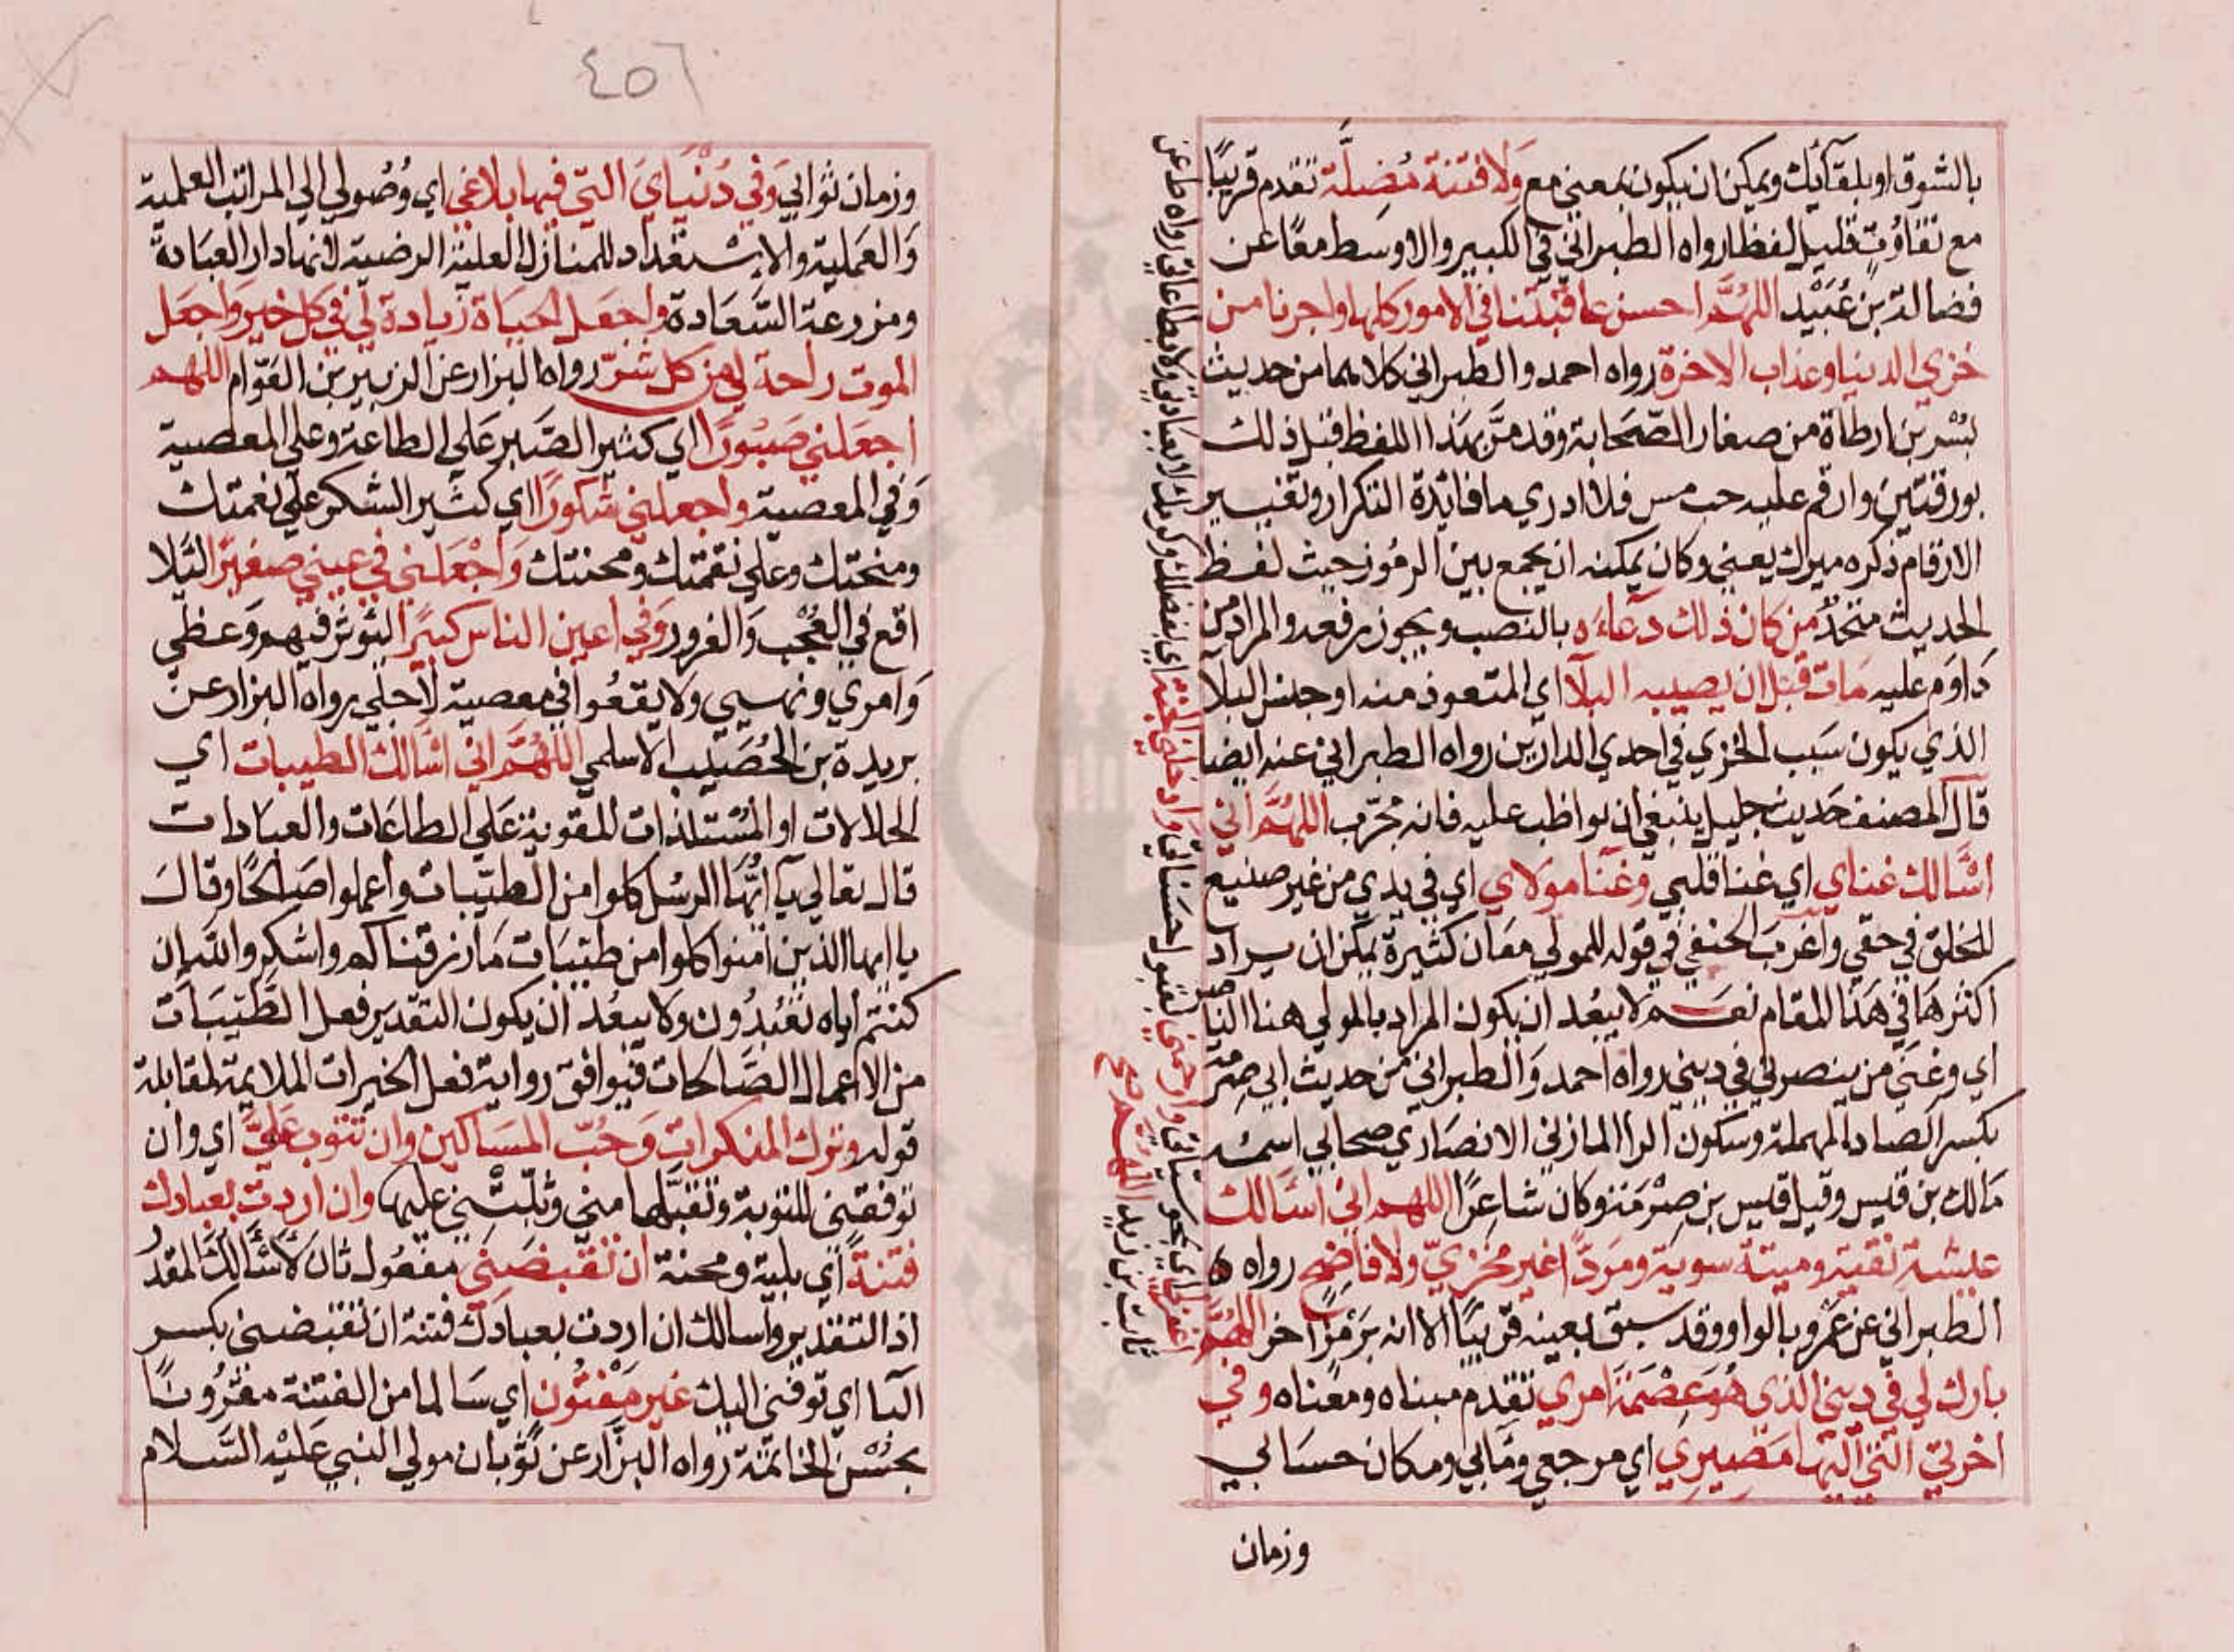 بالشوق او بلقآئك ويمكن ان يكون بمعني مع وَلا فتنة مُضِلَّة تقدم قريبًا
مع تفاوُتٍ قليل لفظا رواه الطبراني في الكبير والاوسط معًا عن
فضالة بن عُبَيْد اللهُمَّ احسن عاقبتنا في الامور كلها واجرنا من
خزي الدنيا وعذاب الاخرة رواه احمد والطبراني كلاهما من حديث
بُسْر بن ارطاة من صغار الصّحَابة وقد مرَّ بهذا اللفظ قبل ذلك
بورقتين وارقم عليه حب مس فلا ادري ما فائدة التكرار وتغيير
الارقام ذكره ميرك يعني وكان يمكنه ان يجمع بين الرمُوز حيث لفظ
الحديث متحدٌ من كان ذلك دعآءَه بالنصب ويجوز رفعه والمراد من
دَاوَم عليه مَات قبل ان يصيبه البلآ اي المتعوذ منه او جنس البلآ
الذي يكون سَبب الخزي في احدي الدارين رواه الطبراني عنه ايضا
قال المصنف حَديث جليل ينبغي ان يواظب عليه فانه مجرّب اللهُمَّ اني
اسْالك غناي اي غنا قلبي وغنا مولاي اي في يدي من غير صنيع
للخلق في حقي واغرب الحنفي في قوله للمولي معَان كثيرة يمكن ان يراد
اكثرهَا في هَذا المقام نعَم لا يبعُد ان يكون المراد بالمولي هنا الناصر
اي وغني من ينصرني في ديني رواه احمد وَالطبراني من حديث ابي صِرْمَة
بكسر الصاد المهملة وسكون الرا المازني الانصَاري صحابي اسمُه
مَالك بن قيس وقيل قيس بن صِرْمَة وكان شاعِرًا اللهم اني اسَالك
عيشة نقية وميتة سوية ومَردًّا غير مخزيّ ولا فاضح رواه
الطبراني عن عَمرو بالوَاو وقد سبق بعينه قريبًا الا انه برَمْزٍ اخر اللهُمَّ
بارك لي في ديني الذي هُوَ عِصْمَة امري تقدم مبناه ومعناه وفي
اخرتي التي اليها مَصِيرِي اي مرجعي ومَابي ومكان حسَابي
وزمان
٤٥٦
وزمان ثوابي وَفي دُنْيَايَ التي فيها بلاغي اي وُصُولي الي المراتب العلمية
وَالعَمليّة والاسْتعْداد للمنازل العليّة الرضية لانها دار العبَادة
ومزرعة السَّعَادة واجعَل الحيَاة زيادة لي في كل خير واجعَل
الموت راحة لي من كل شرّ رواه البزار عن الزبير بن العَوّام اللهم
اجعَلني صَبُورًا اي كثير الصَّبر عَلي الطاعة وعلي المعصية
وَفي المعصية واجعلني شكورًا اي كثير الشكر علي نعمتك
ومنحتك وعلي نقمتك ومحنتك وَاجْعَلني في عيني صغيرًا لئلا
اقع في العُجْب وَالغرور وَفي اعين الناس كبيرًا ليؤثر فيهم وَعظي
وَامري ونهيي ولا يقعُوا في معصية لاجلي رواه البزار عن
بريدة بن الحُصَيب الاسلمي اللهُمَّ اني اسَالك الطيبات اي
الحلالات او المُسْتلذات المقوية عَلي الطاعَات والعبادات
قال تعالي يآ ايُّهَا الرسُل كلوا من الطيّبات واعملوا صَالحًا وقال
يا ايها الذين امنوا كلوا من طيّبَات مَا رزقناكم واشكروا لله ان
كنتم اياه تعْبُدُون ولا يبعُد ان يكون التقدير فعل الطَّيّبَات
من الاعمال الصَّالحات فيوافق رواية فعل الخيرات الملايمة لمقابلة
قوله وترك المنكرات وَحُبّ المسَاكين وان تتوب عَليَّ اي وان
توفقني للتوبة وتقبَّلها مني وثبّتْني عليها وان اردت بعبادك
فتنةً اي بلية ومحنة ان تقبضَني مفعُول ثان لاسْالك المقدر
اذ التقدير واسالك ان اردت بعبادك فتنة ان تقبضني بكسر
اليا اي توفني اليك غير مَفْتُون اي سَالما من الفتنة مقرُونًا
بحُسْن الخاتمة رواه البزّار عن ثوبان مولي النبي عَليْه السَّلام